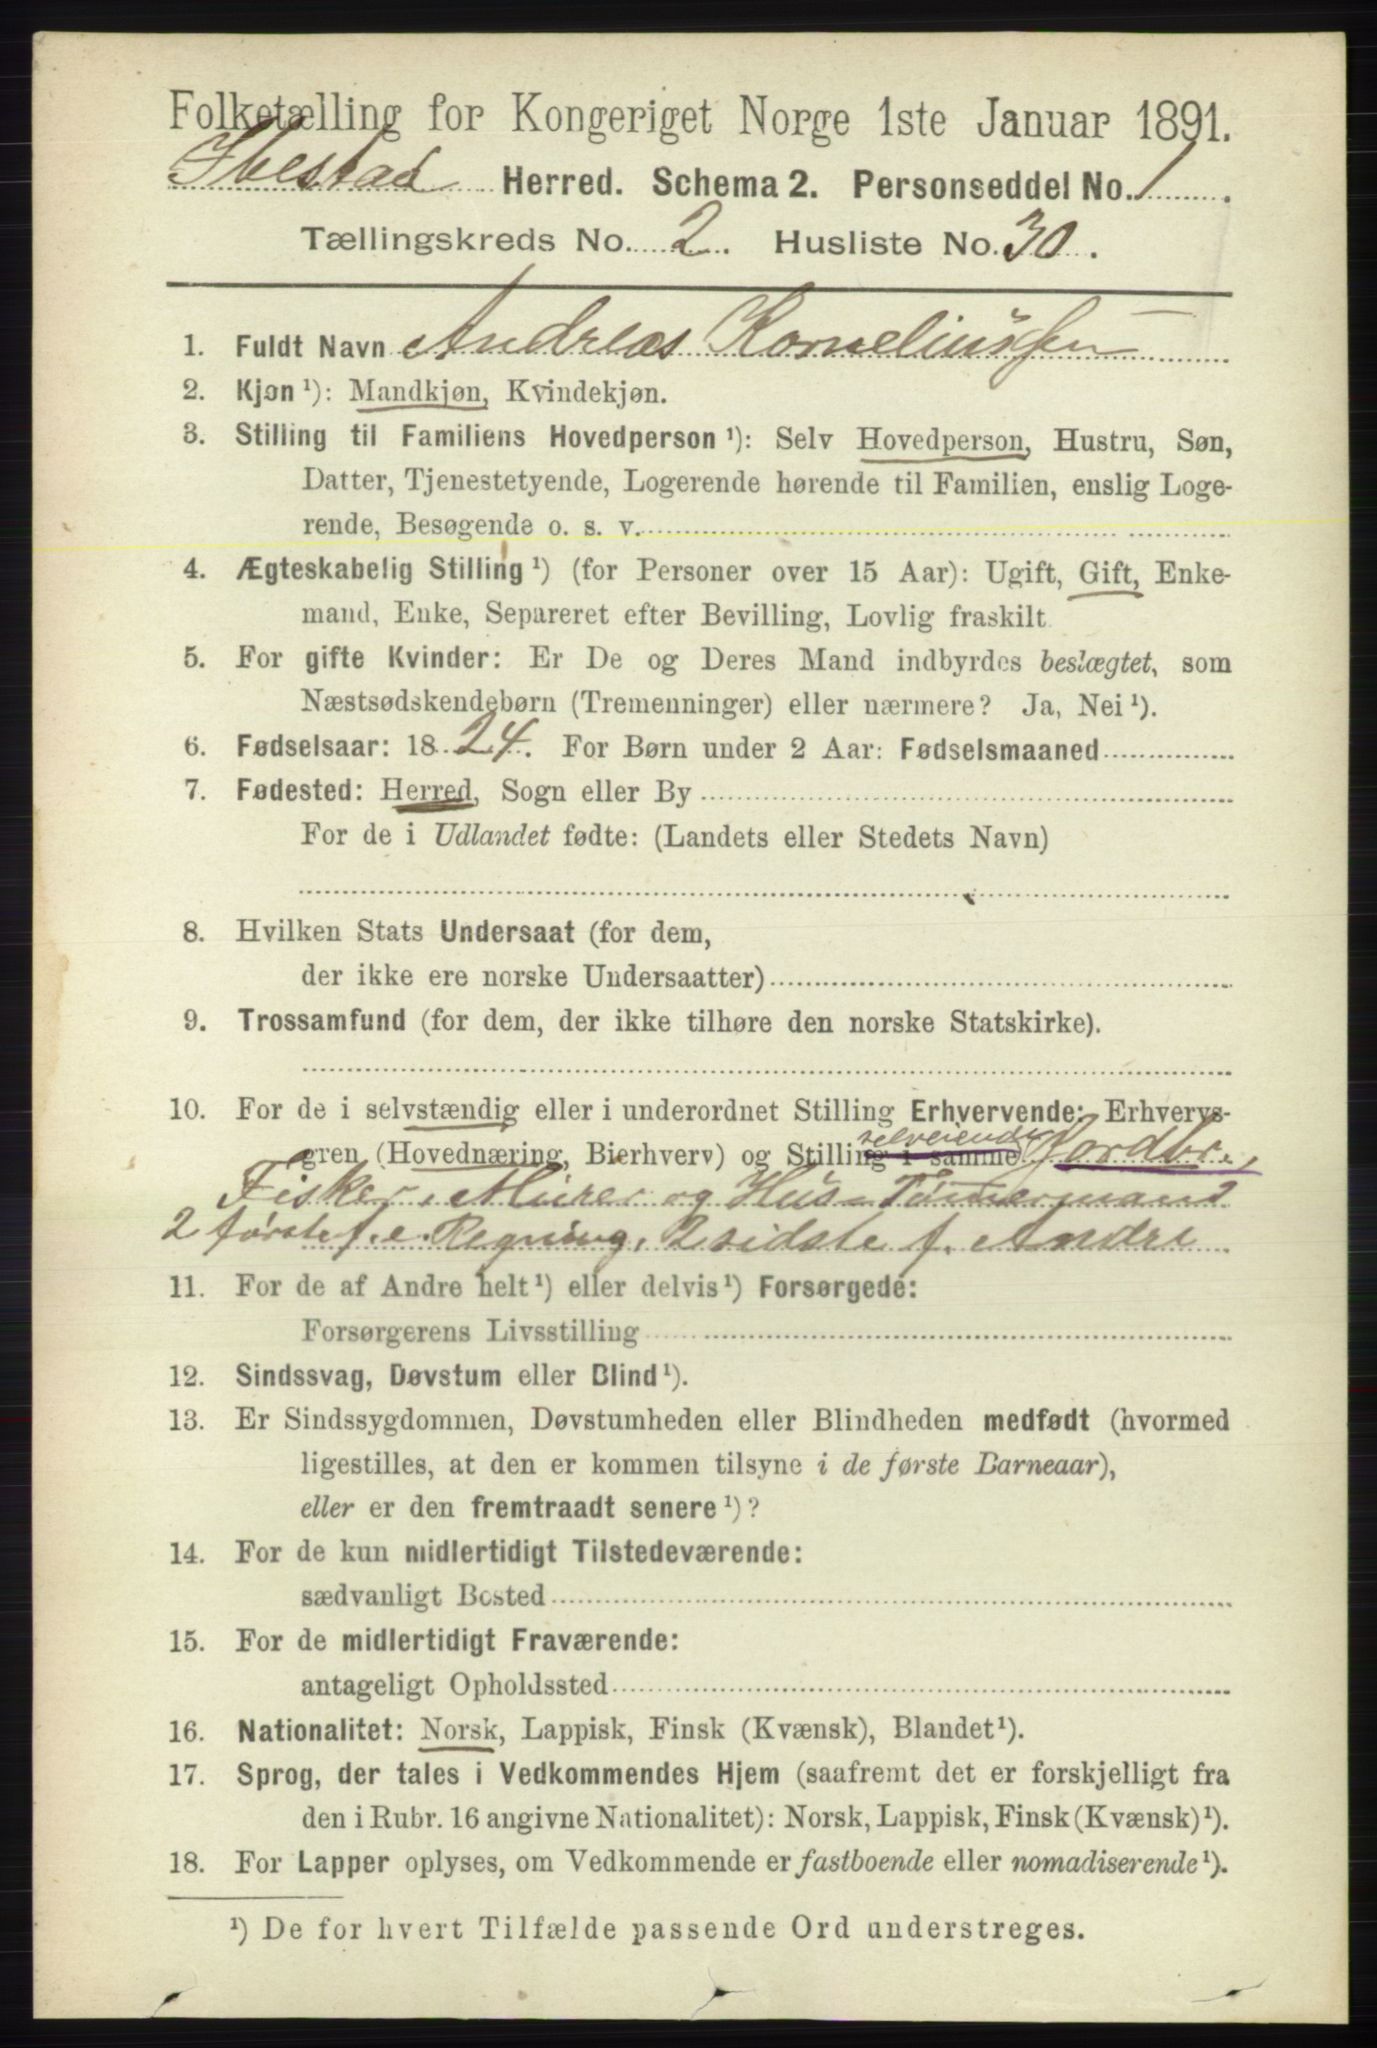 Folketælling for Kongeriget Norge 1ste Januar 1891.
Ibestad Herred. Schema 2. Personseddel No. 1.
Tællingskreds No. 2. Husliste No. 30.
1. Fuldt Navn Andreas Korneliussen
2. Kjøn ¹): Mandkjøn, Kvindekjøn.
3. Stilling til Familiens Hovedperson ¹): Selv Hovedperson, Hustru, Søn,
Datter, Tjenestetyende, Logerende hørende til Familien, enslig Loge-
rende, Besøgende o. s. v.
4. Ægteskabelig Stilling ¹) (for Personer over 15 Aar): Ugift, Gift, Enke-
mand, Enke, Separeret efter Bevilling, Lovlig fraskilt
5. For gifte Kvinder: Er De og Deres Mand indbyrdes beslægtet, som
Næstsødskendebørn (Tremenninger) eller nærmere? Ja, Nei ¹).
6. Fødselsaar: 1824. For Børn under 2 Aar: Fødselsmaaned
7. Fødested: Herred, Sogn eller By
For de i Udlandet fødte: (Landets eller Stedets Navn)
8. Hvilken Stats Undersaat (for dem,
der ikke ere norske Undersaatter)
9. Trossamfund (for dem, der ikke tilhøre den norske Statskirke).
10. For de i selvstændig eller i underordnet Stilling Erhvervende: Erhvervs-
gren (Hovednæring, Bierhverv) og Stilling i samme selveiende Jordbr.,
Fisker, Murer og Hus-Tømmermand
2 første f. e. Regning, 2 sidste f. Andre
11. For de af Andre helt ¹) eller delvis ¹) Forsørgede:
Forsørgerens Livsstilling
12. Sindssvag, Døvstum eller Blind ¹).
13. Er Sindssygdommen, Døvstumheden eller Blindheden medfødt (hvormed
ligestilles, at den er kommen tilsyne i de første Barneaar),
eller er den fremtraadt senere ¹)?
14. For de kun midlertidigt Tilstedeværende:
sædvanligt Bosted
15. For de midlertidigt Fraværende:
antageligt Opholdssted
16. Nationalitet: Norsk, Lappisk, Finsk (Kvænsk), Blandet ¹).
17. Sprog, der tales i Vedkommendes Hjem (saafremt det er forskjelligt fra
den i Rubr. 16 angivne Nationalitet): Norsk, Lappisk, Finsk (Kvænsk) ¹).
18. For Lapper oplyses, om Vedkommende er fastboende eller nomadiserende ¹).
¹) De for hvert Tilfælde passende Ord understreges.